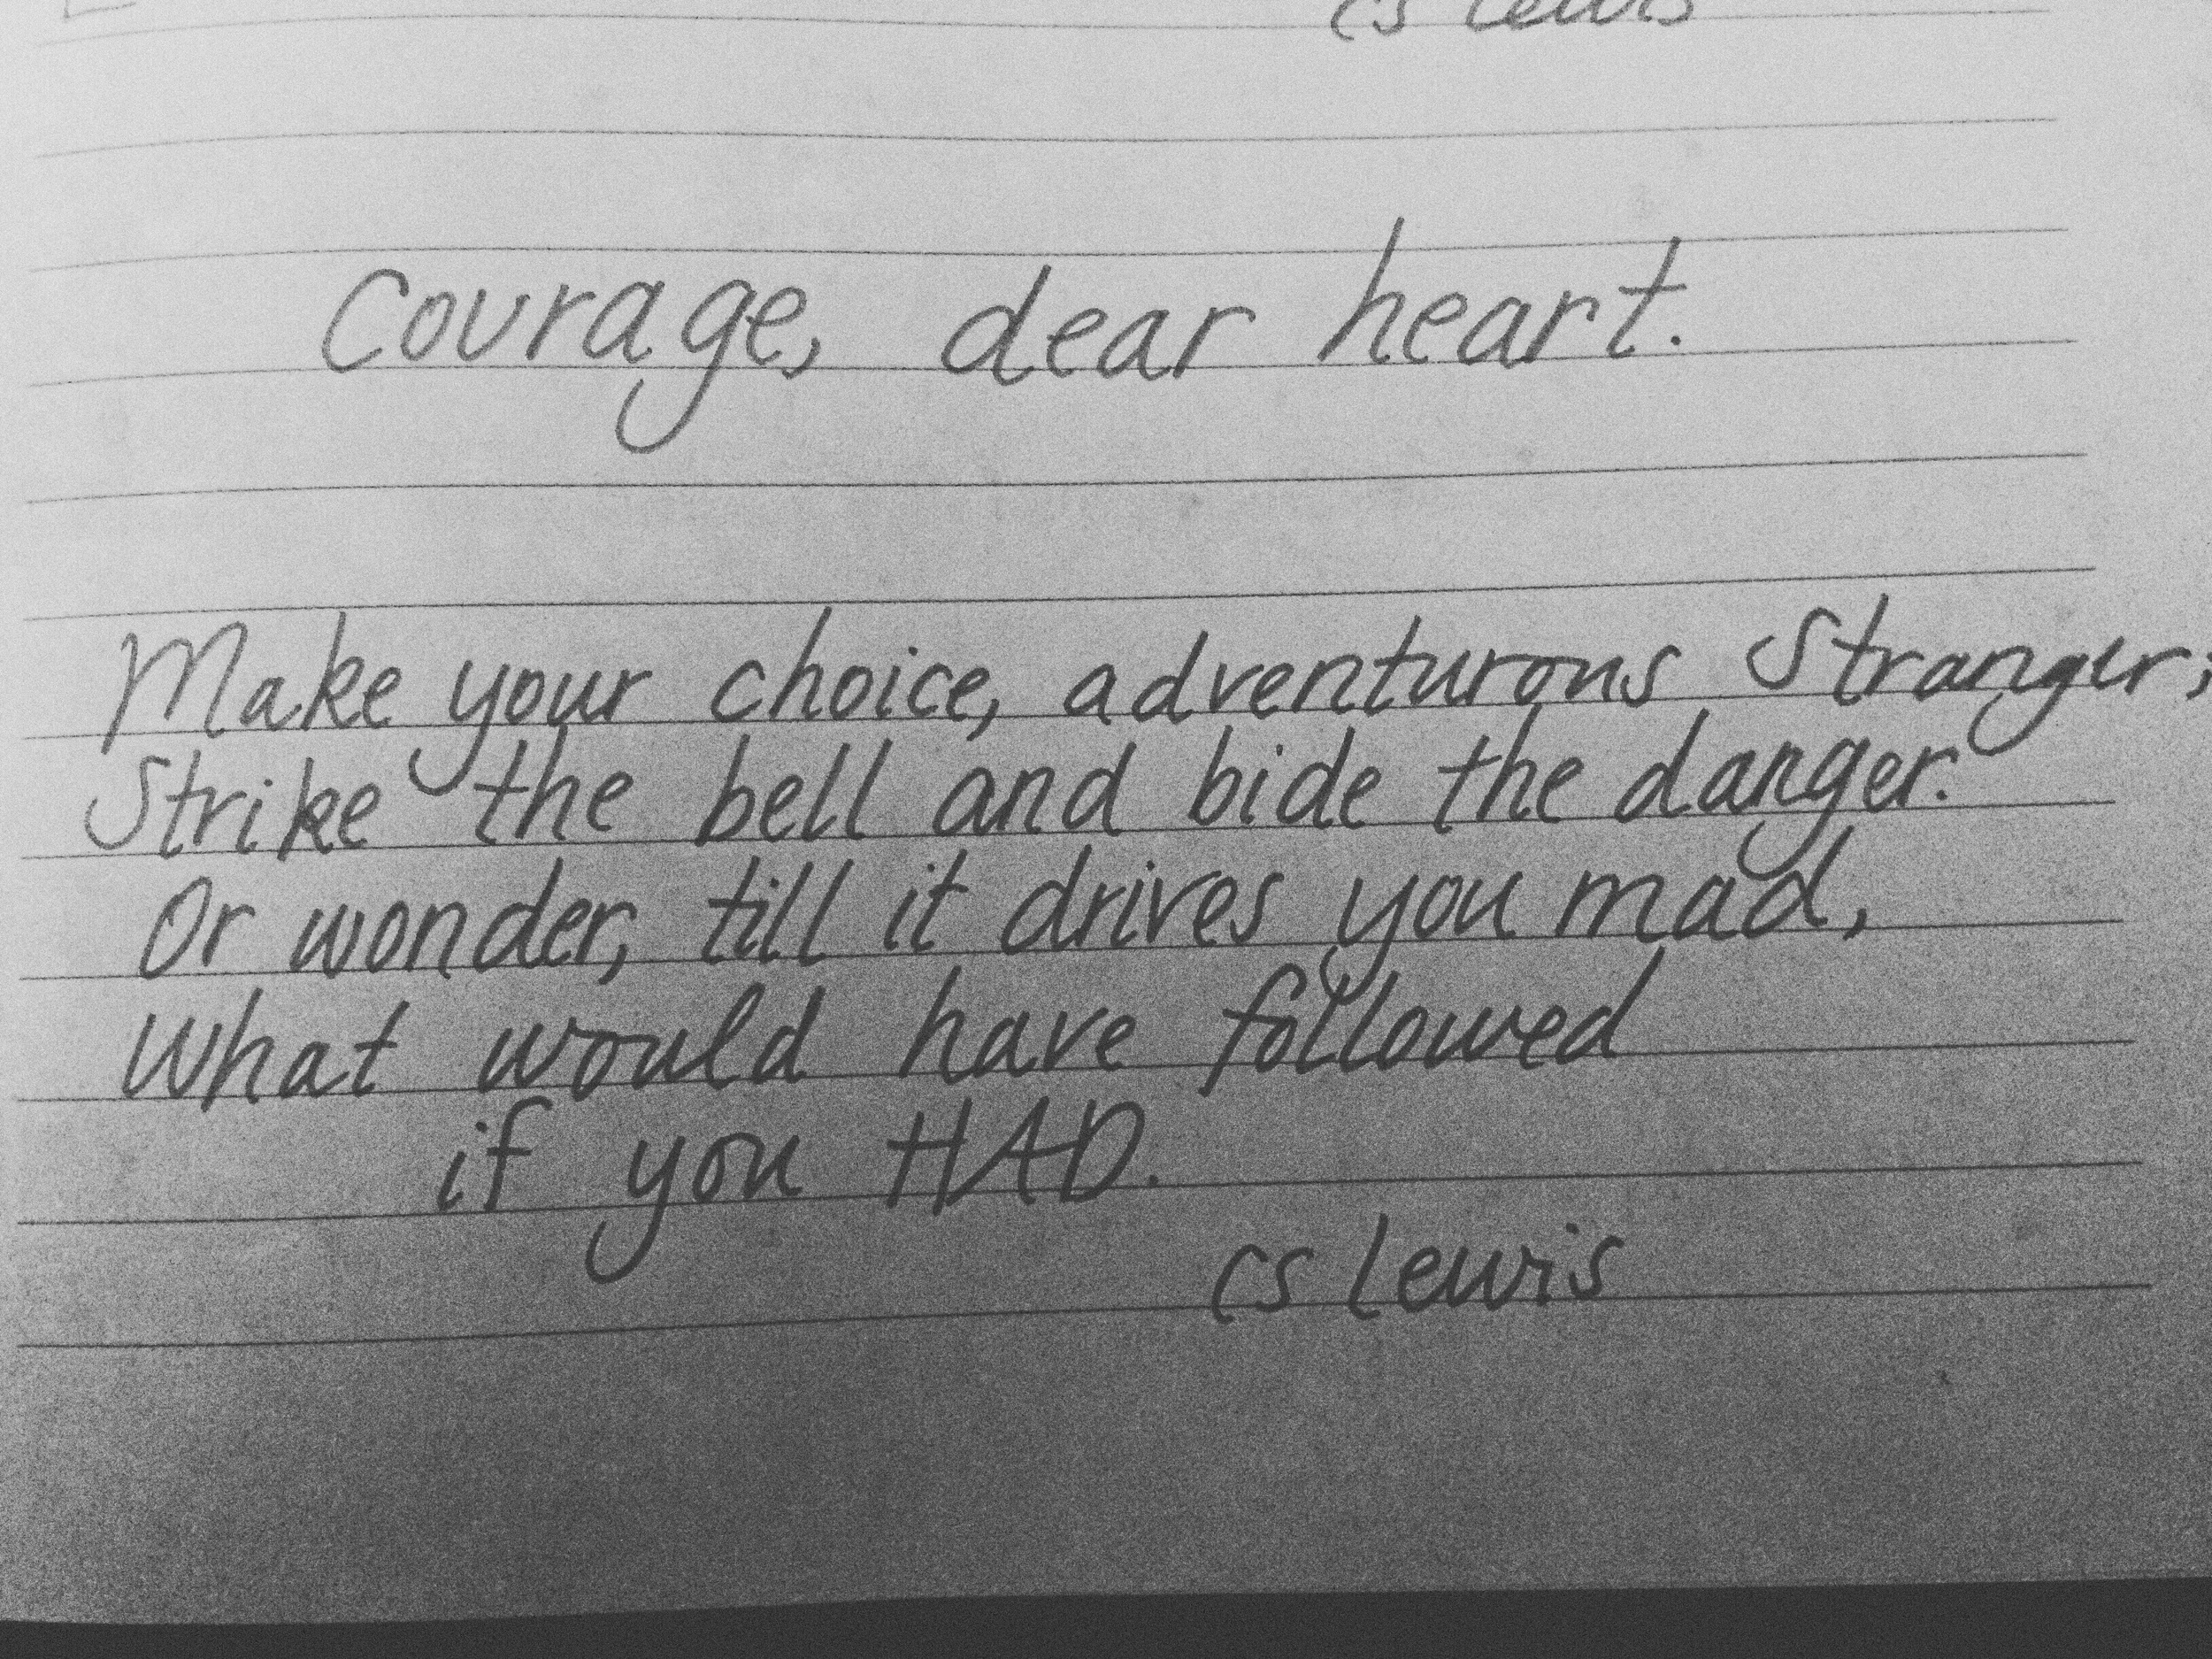 cs Lewis
Courage, dear heart.
Make your choice, adventurous Stranger;
Strike the bell and bide the danger.
Or wonder, till it drives you mad,
What would have followed
if you HAD.
cs Lewis